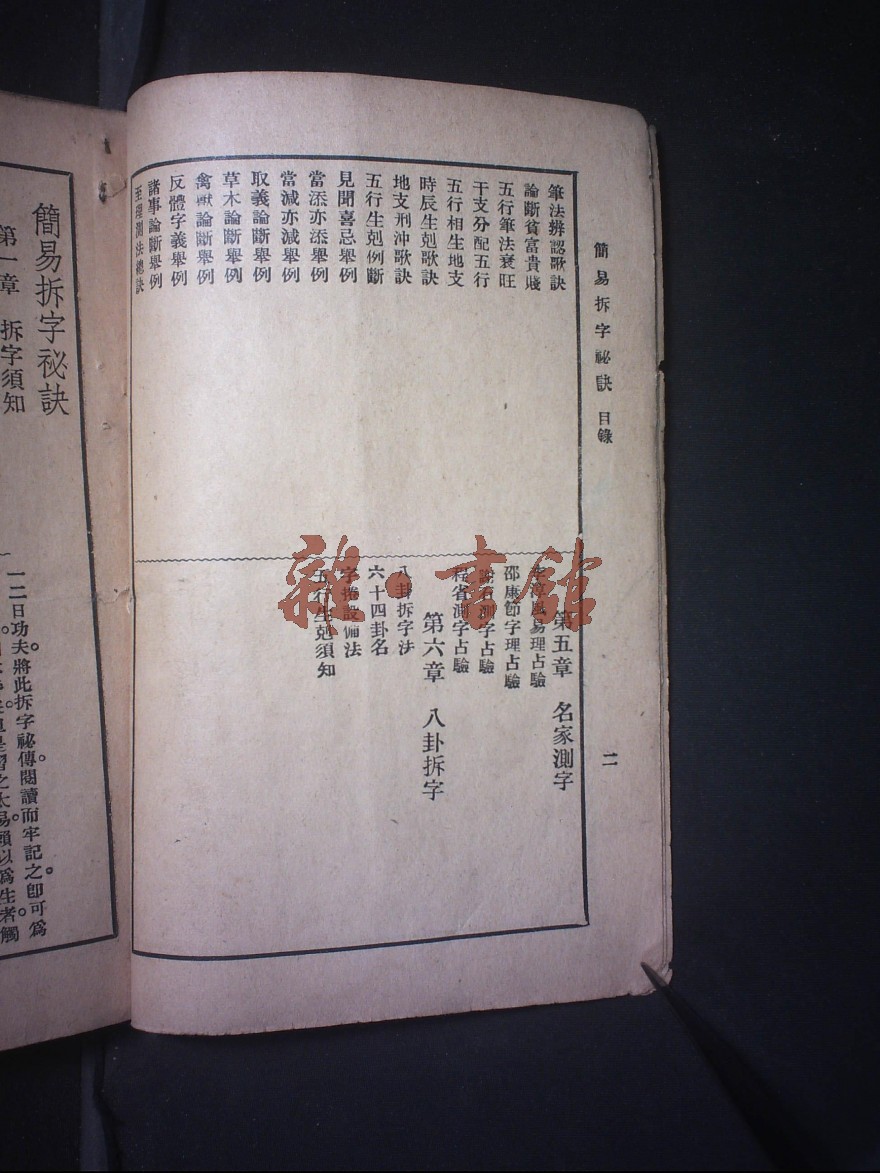 簡易拆字祕訣 目錄
二
筆法辨認歌訣
論斷貧富貴賤
五行筆法衰旺
干支分配五行
五行相生地支
時辰生剋歌訣
地支刑沖歌訣
五行生剋例斷
見聞喜忌舉例
當添亦添舉例
當減亦減舉例
取義論斷舉例
草木論斷舉例
禽獸論斷舉例
反體字義舉例
諸事論斷舉例
至理測法總訣
第五章 名家測字
李淳風易理占驗
邵康節字理占驗
謝石測字占驗
程省測字占驗
第六章 八卦拆字
八卦拆字法
六十四卦名
字捲設備法
五行生剋須知
雜·書館
簡易拆字祕訣
第一章 拆字須知
一二日功夫。將此拆字祕傳閱讀而牢記之。卽可爲